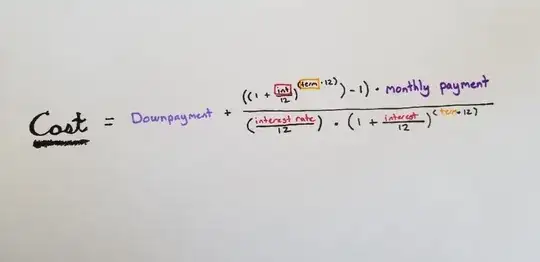 Cost = Downpayment + ((1 + int/12)^(term·12)) - 1) · monthly payment
(interest rate/12) · (1 + interest/12)^(term·12)